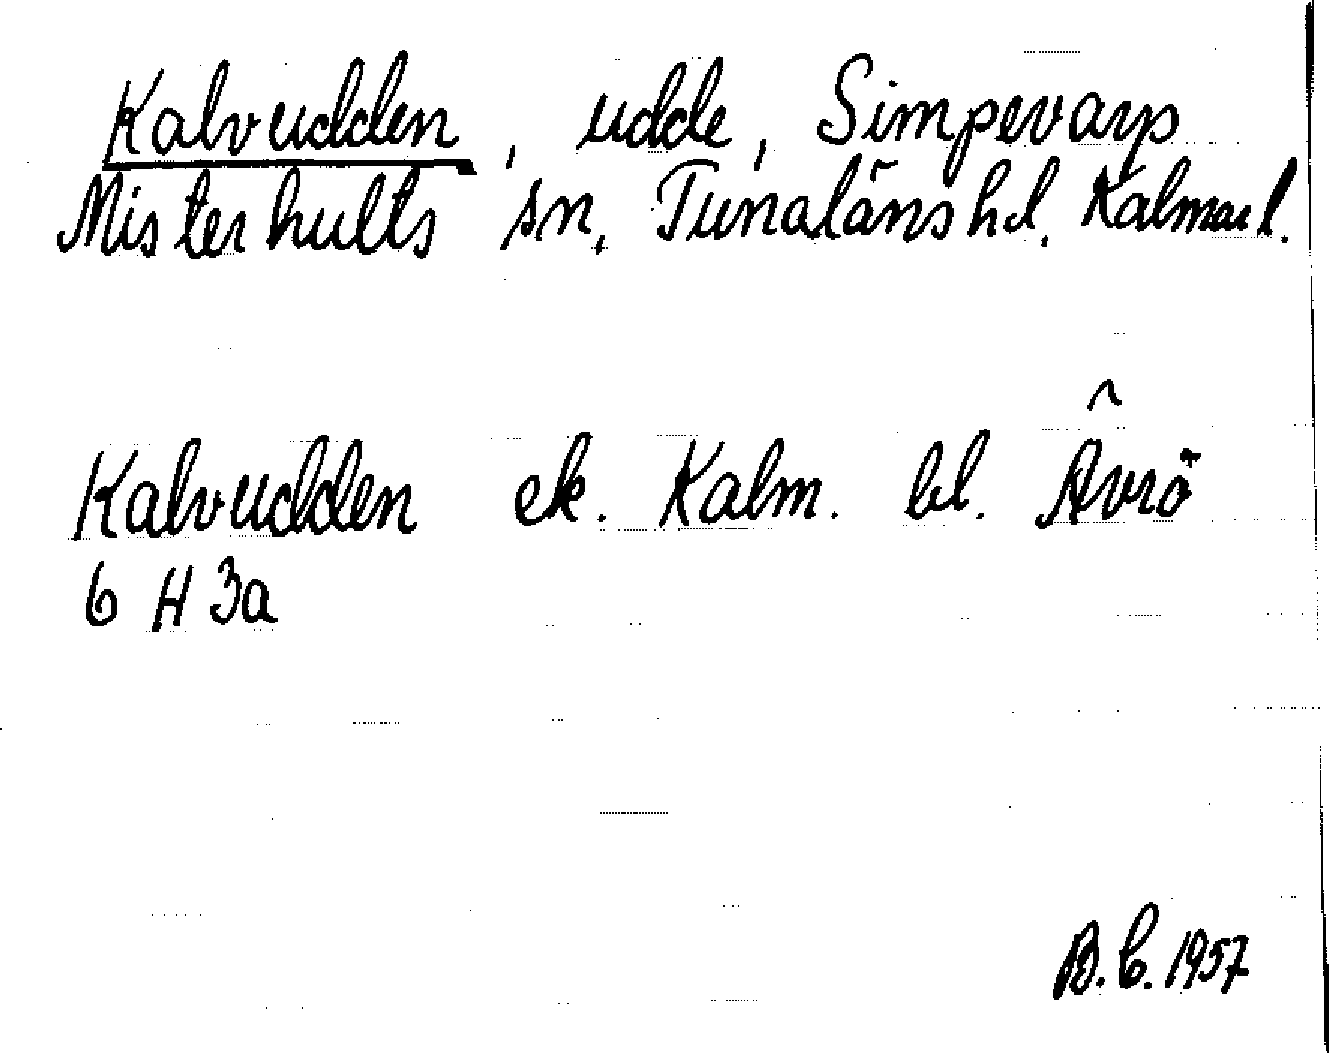 Kalvudden, udde, Simpevarp
Misterhults sn, Tunaläns hd, Kalmar l.
Kalvudden ek. Kalm. bl. Âvrö
6 H 3a
B.C. 1957